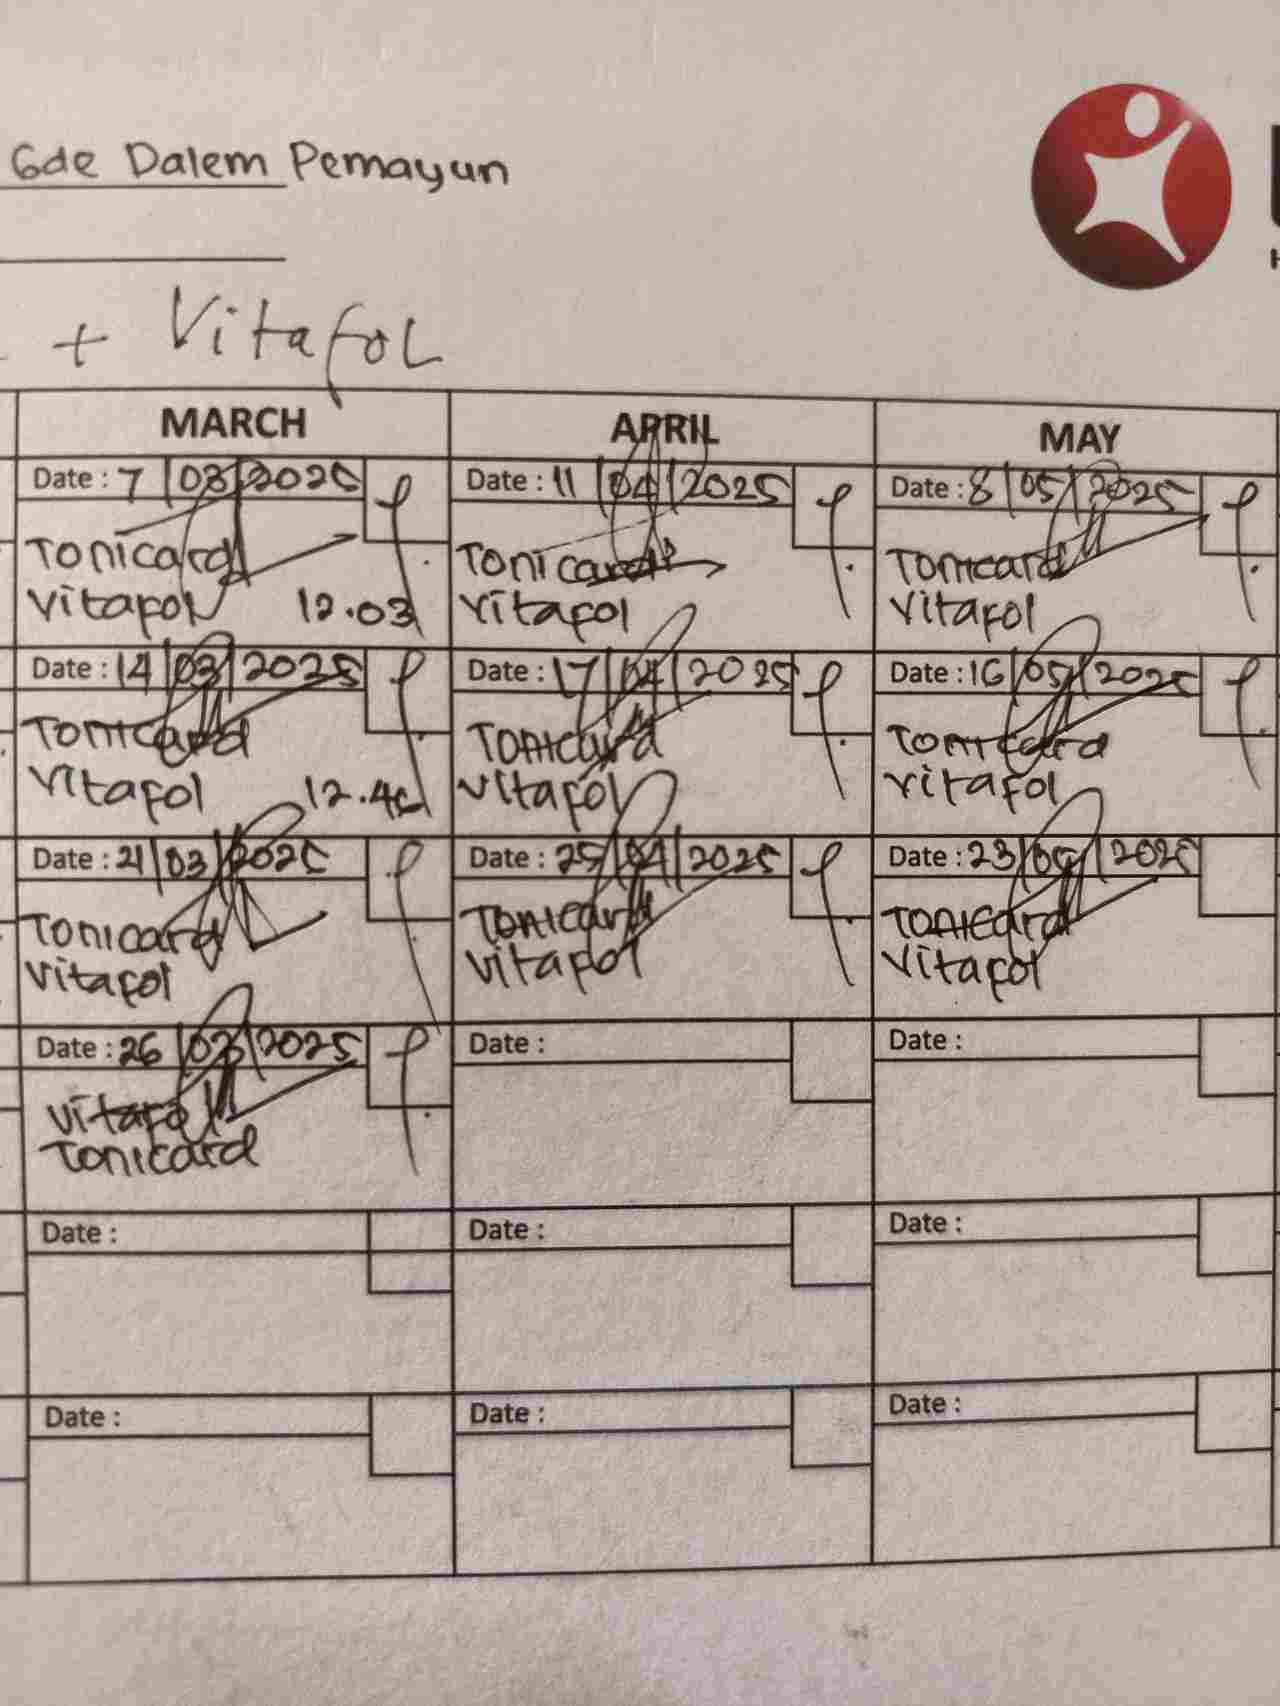 Gde Dalem Pemayun
+ Vitafol
MARCH
APRIL
MAY
Date : 7/03/2025
Tonicard
Vitafol 12.03
Date : 11/04/2025
Tonicard
Vitafol
Date : 8/05/2025
Tonicard
Vitafol
Date : 14/03/2025
Tonicard
Vitafol 12.46
Date : 17/04/2025
Tonicard
Vitafol
Date : 16/05/2025
Tonicard
Vitafol
Date : 21/03/2025
Tonicard
Vitafol
Date : 25/04/2025
Tonicard
Vitafol
Date : 23/05/2025
Tonicard
Vitafol
Date : 26/03/2025
Vitafol
Tonicard
Date :
Date :
Date :
Date :
Date :
Date :
Date :
Date :